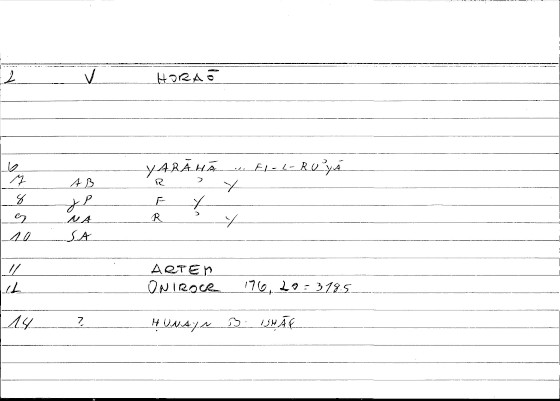 2 V HORAŌ
6 YARĀHĀ .. FI-L-RUʾYĀ
7 AB R ʾ Y
8 γP F Y
9 NA R ʾ Y
10 SA
11 ARTEM
12 ONIROCR 176, 20 = 3185
14 ? ḤUNAYN B. ISḤĀQ